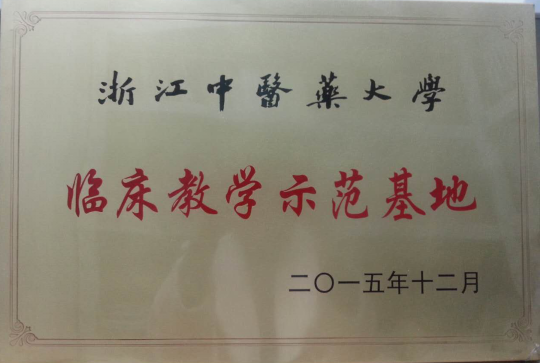 浙江中醫藥大學
临床教学示范基地
二〇一五年十二月